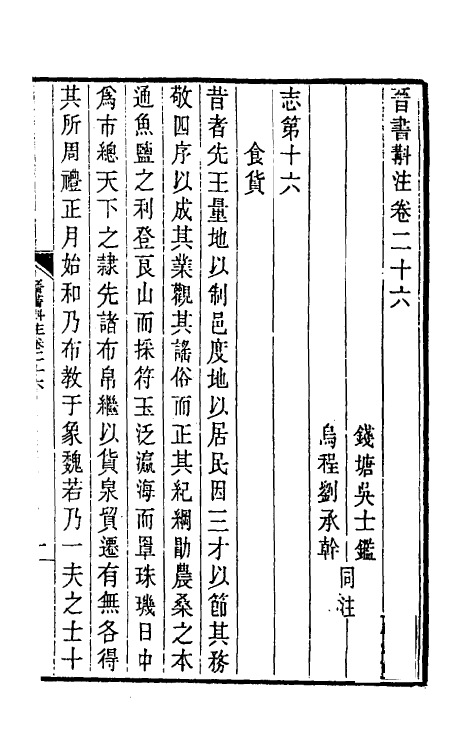 晉書斠注卷二十六
錢塘吳士鑑
烏程劉承幹
同注
志第十六
食貨
昔者先王量地以制邑度地以居民因三才以節其務
敬四序以成其業觀其謠俗而正其紀綱勖農桑之本
通魚鹽之利登良山而採符玉泛瀛海而罩珠璣日中
爲市總天下之隷先諸布帛繼以貨泉貿遷有無各得
其所周禮正月始和乃布教于象魏若乃一夫之士十
晉書斠注卷二十六
一